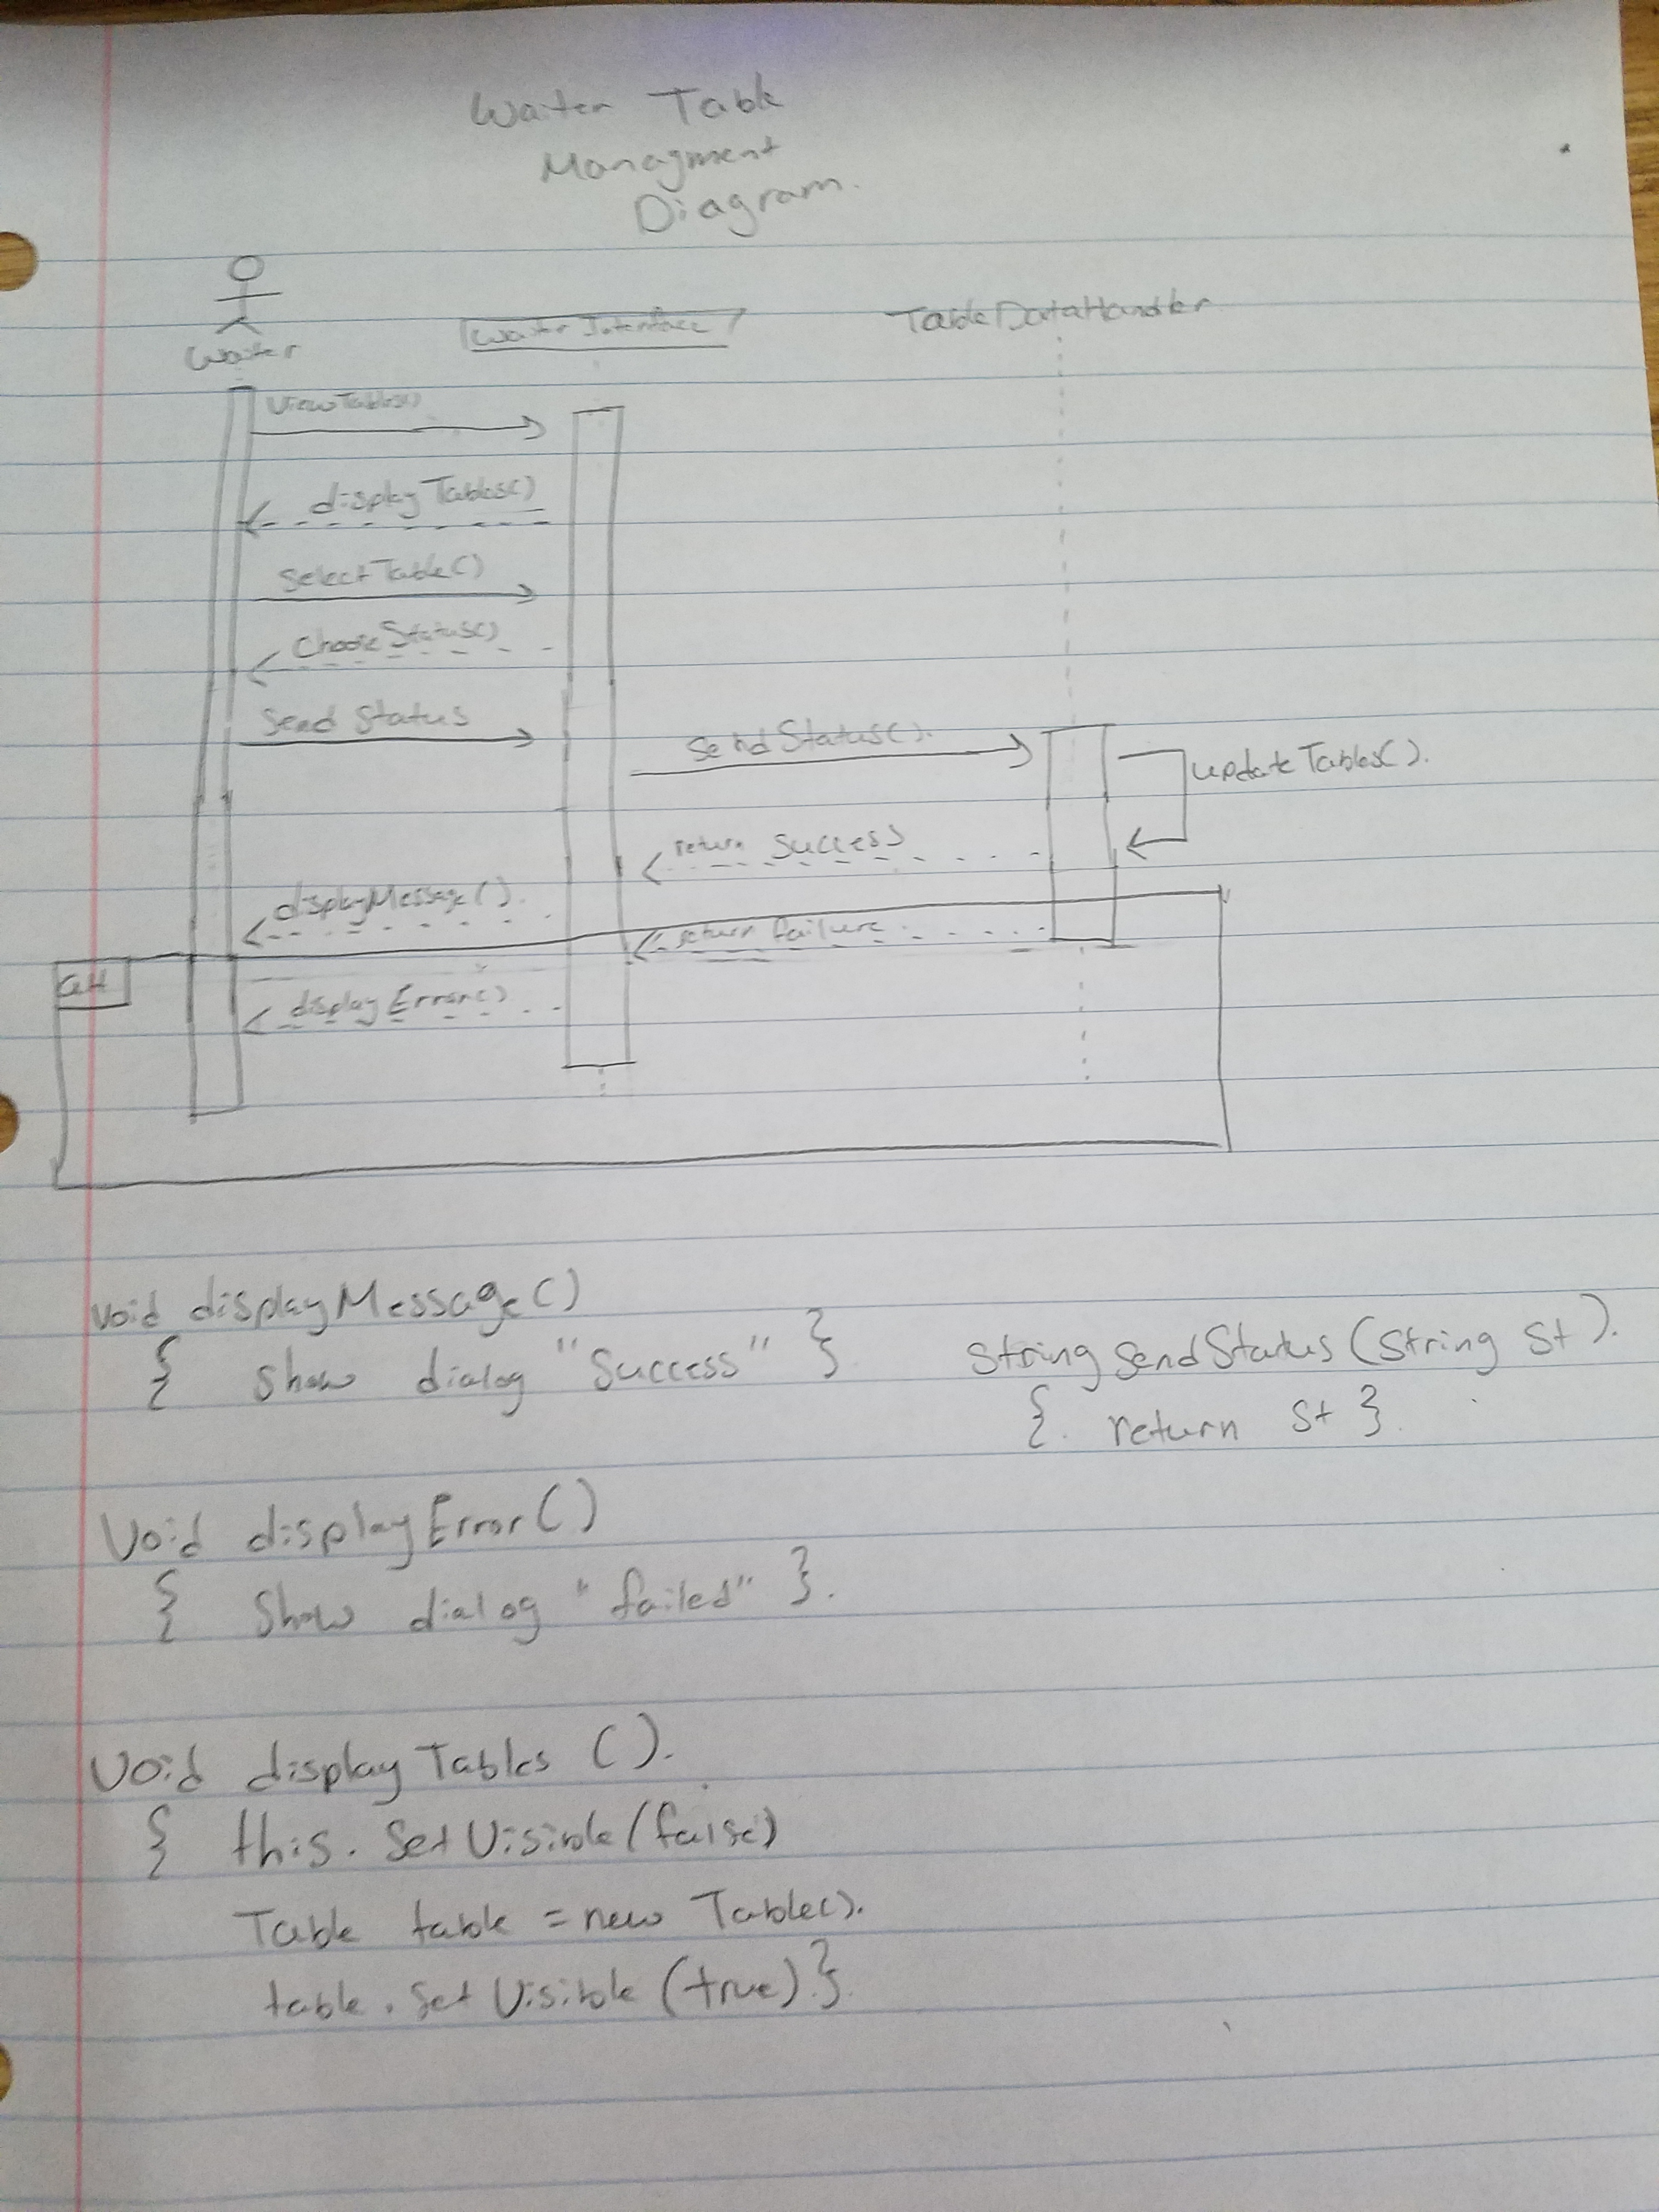 Waiter Table
Managment
Diagram.
Waiter
Waiter Interface
TableDataHandler
ViewTables()
displayTables()
SelectTable()
ChooseStatus()
Send Status
SendStatus().
updateTables().
return Success
displayMessage().
return failure
alt
displayError()
void displayMessage()
{ show dialog "Success" }
String sendStatus (String St).
{. return St }.
Void displayError()
{ Show dialog "failed" }.
Void displayTables ().
{ this. SetVisible(false)
Table table = new Table().
table. Set Visible (true).}